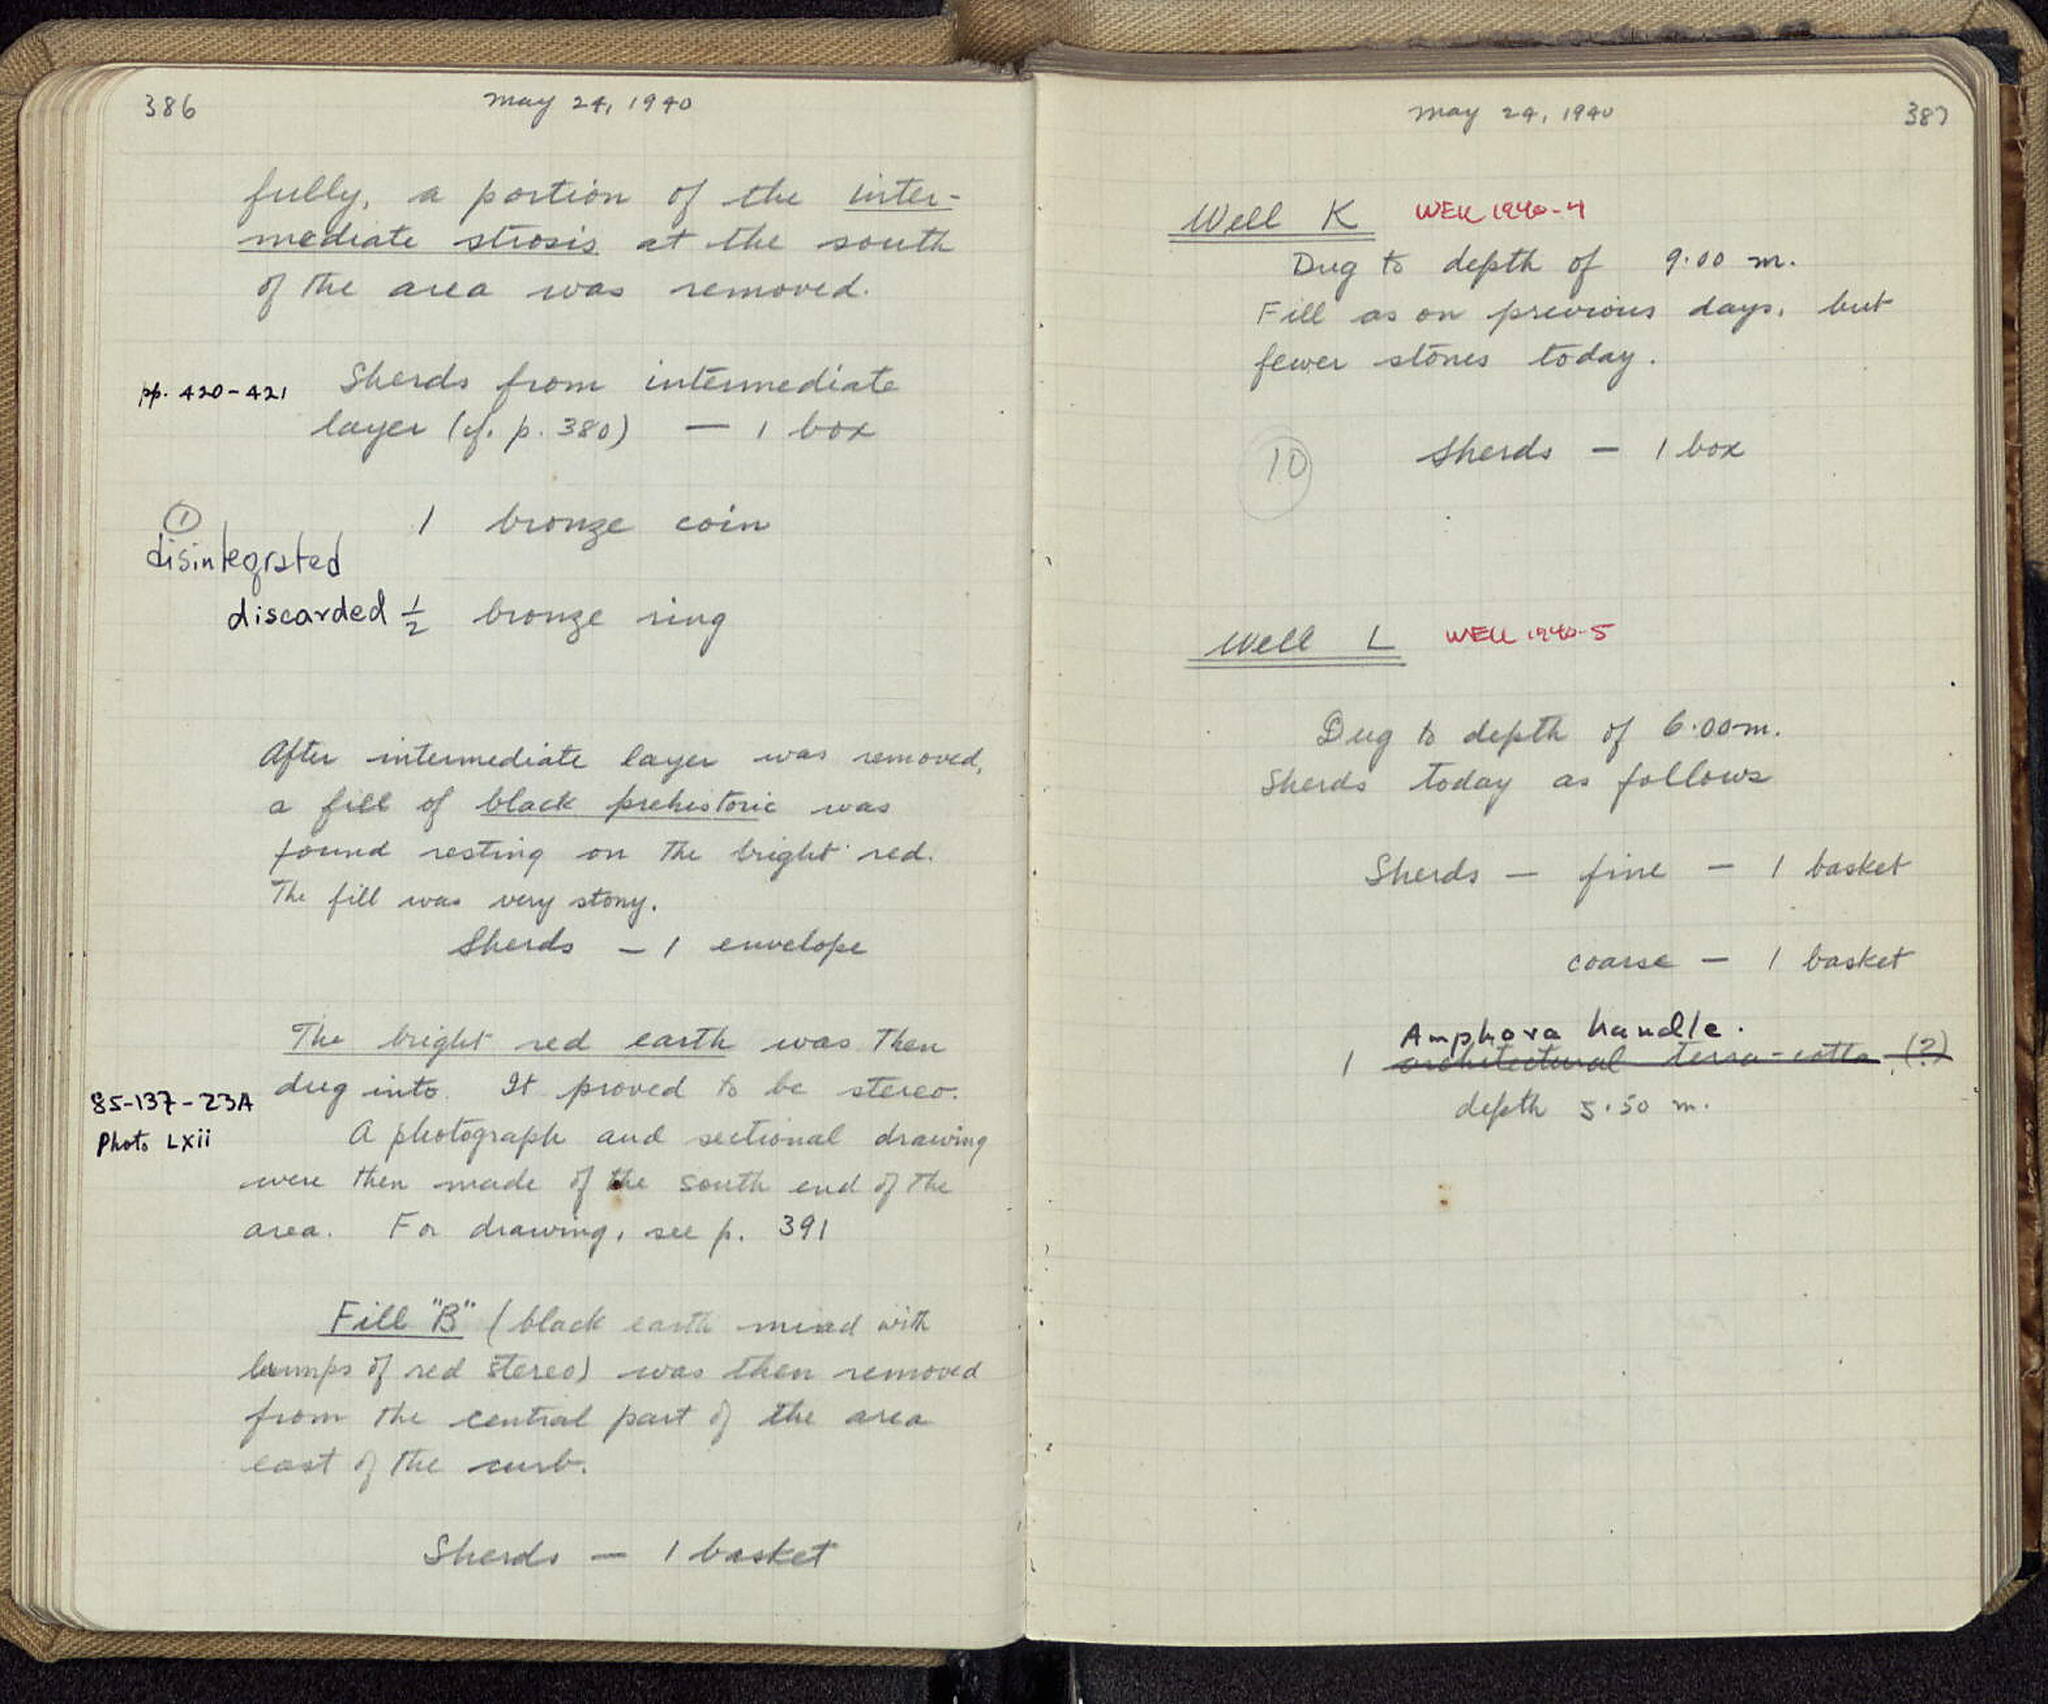 386
May 24, 1940
fully, a portion of the inter-
mediate strosis at the south
of the area was removed.
pp. 420-421
Sherds from intermediate
layer (cf. p. 380) — 1 box
①
1 bronze coin
disintegrated
discarded ½ bronze ring
After intermediate layer was removed,
a fill of black prehistoric was
found resting on the bright red.
The fill was very stony.
Sherds — 1 envelope
The bright red earth was then
dug into. It proved to be stereo.
85-137-23A
Photo LXii
A photograph and sectional drawing
were then made of the south end of the
area. For drawing, see p. 391
Fill "B" (black earth mixed with
lumps of red stereo) was then removed
from the central part of the area
east of the curb.
Sherds — 1 basket
May 24, 1940
387
Well K WELL 1940-4
Dug to depth of 9.00 m.
Fill as on previous days, but
fewer stones today.
10
Sherds — 1 box
Well L WELL 1940-5
Dug to depth of 6.00 m.
Sherds today as follows
Sherds — fine — 1 basket
coarse — 1 basket
Amphora handle.
1 architectural terra-cotta (?)
depth 5.50 m.